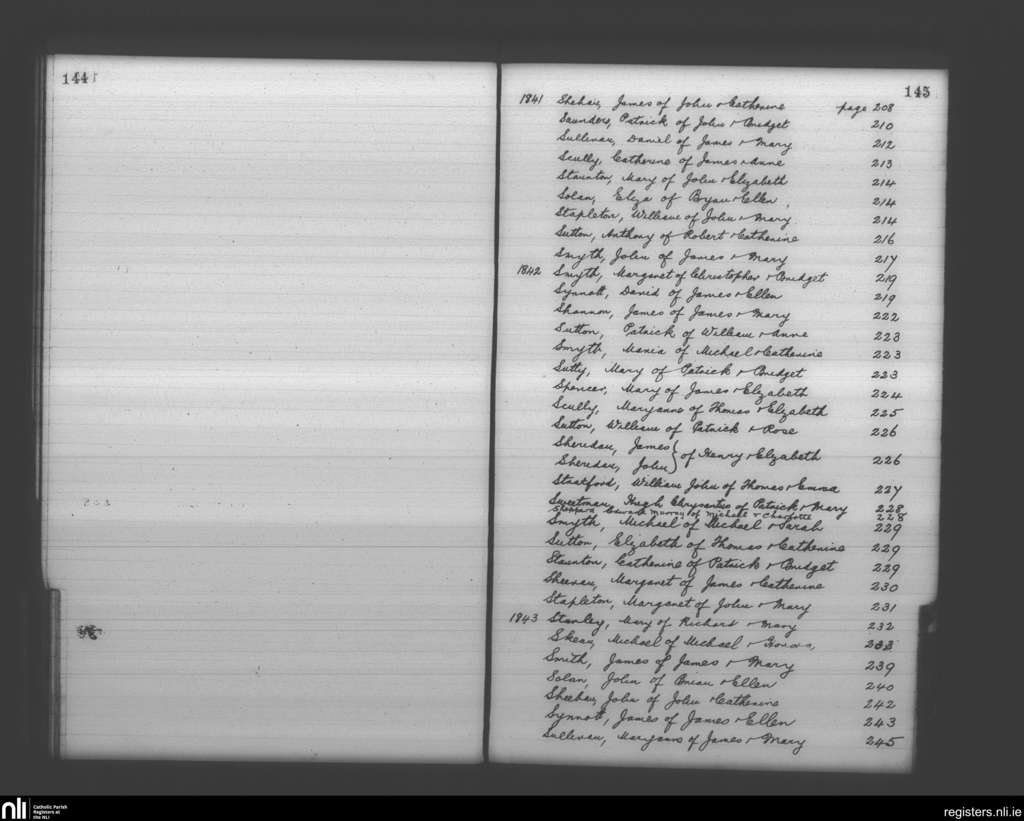 144
145
1841 Shehan, James of John & Catherine page 208
Saunders, Patrick of John & Bridget 210
Sullivan, Daniel of James & Mary 212
Scully, Catherine of James & Anne 213
Staunton, Mary of John & Elizabeth 214
Solan, Eliza of Bryan & Ellen, 214
Stapleton, William of John & Mary 214
Sutton, Anthony of Robert & Catherine 216
Smyth, John of James & Mary 217
1842 Smyth, Margaret of Christopher & Bridget 219
Synnott, David of James & Ellen 219
Shannon, James of James & Mary 222
Sutton, Patrick of William & Anne 223
Smyth, Maria of Michael & Catherine 223
Sutty, Mary of Patrick & Bridget 223
Spencer, Mary of James & Elizabeth 224
Scully, Maryanne of Thomas & Elizabeth 225
Sutton, William of Patrick & Rose 226
Sheridan, James
Sheridan, John } of Henry & Elizabeth 226
Stratford, William John of Thomas & Emma 227
Sweetman, Hugh Chrysantus of Patrick & Mary 228
Edward Murray of Michael & Charlotte 228
Smyth, Michael of Michael & Sarah 229
Sutton, Elizabeth of Thomas & Catherine 229
Staunton, Catherine of Patrick & Bridget 229
Sheevan, Margaret of James & Catherine 230
Stapleton, Margaret of John & Mary 231
1843 Stanley, Mary of Richard & Mary 232
Skean, Michael of Michael & 233
Smith, James of James & Mary 239
Solan, John of Brian & Ellen 240
Sheehan, John of John & Catherine 242
Synnott, James of James & Ellen 243
Sullivan, Maryanne of James & Mary 245
nli
Catholic Parish
Registers at
the NLI
registers.nli.ie